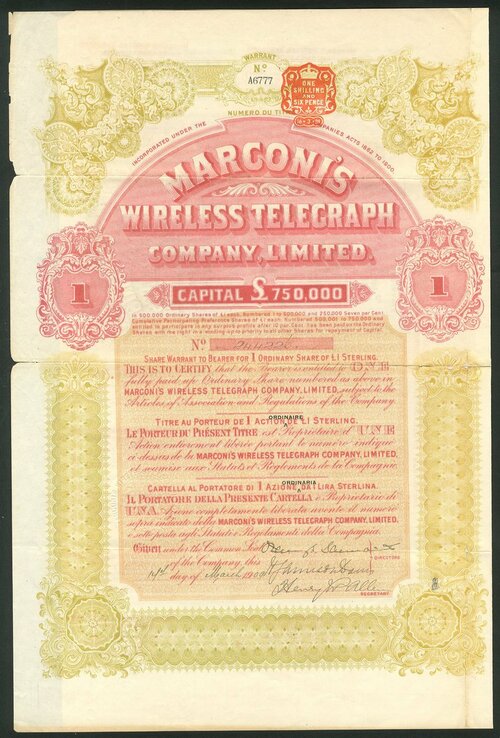 WARRANT
Nº
A6777
ONE
SHILLING
AND
SIX PENCE
NUMERO DU TI
INCORPORATED UNDER THE
PANIES ACTS 1862 TO 1900.
MARCONI'S
WIRELESS TELEGRAPH
COMPANY, LIMITED.
CAPITAL £ 750,000
1
1
In 500,000 Ordinary Shares of £1 each, Numbered 1 to 500,000, and 250,000 Seven per Cent.
Cumulative Participating Preference Shares of £1 each, Numbered 500,001 to 750,000 and
entitled to participate in any surplus profits after 10 per Cent. has been paid on the Ordinary
Shares with the right in a winding-up to priority to all other Shares for repayment of Capital.
Nº
SHARE WARRANT TO BEARER FOR 1 ORDINARY SHARE OF £1 STERLING.
THIS IS TO CERTIFY that the Bearer is entitled to ONE
fully paid up Ordinary Share numbered as above in
MARCONI'S WIRELESS TELEGRAPH COMPANY, LIMITED, subject to the
Articles of Association and Regulations of the Company.
ORDINAIRE
TITRE AU PORTEUR DE 1 ACTION DE £1 STERLING.
LE PORTEUR DU PRÉSENT TITRE est Propriétaire d'UNE
Action entièrement libérée portant le numéro indiqué
ci-dessus de la MARCONI'S WIRELESS TELEGRAPH COMPANY, LIMITED,
et soumise aux Statuts et Règlements de la Compagnie.
ORDINARIA
CARTELLA AL PORTATORE DI 1 AZIONE DA 1 LIRA STERLINA.
IL PORTATORE DELLA PRESENTE CARTELLA è Proprietario di
UNA Azione completamente liberata avente il numero
sopra indicato della MARCONI'S WIRELESS TELEGRAPH COMPANY, LIMITED,
e sottoposta agli Statuti e Regolamenti della Compagnia.
Given under the Common Seal
of the Company, this
DIRECTORS
day of March
SECRETARY